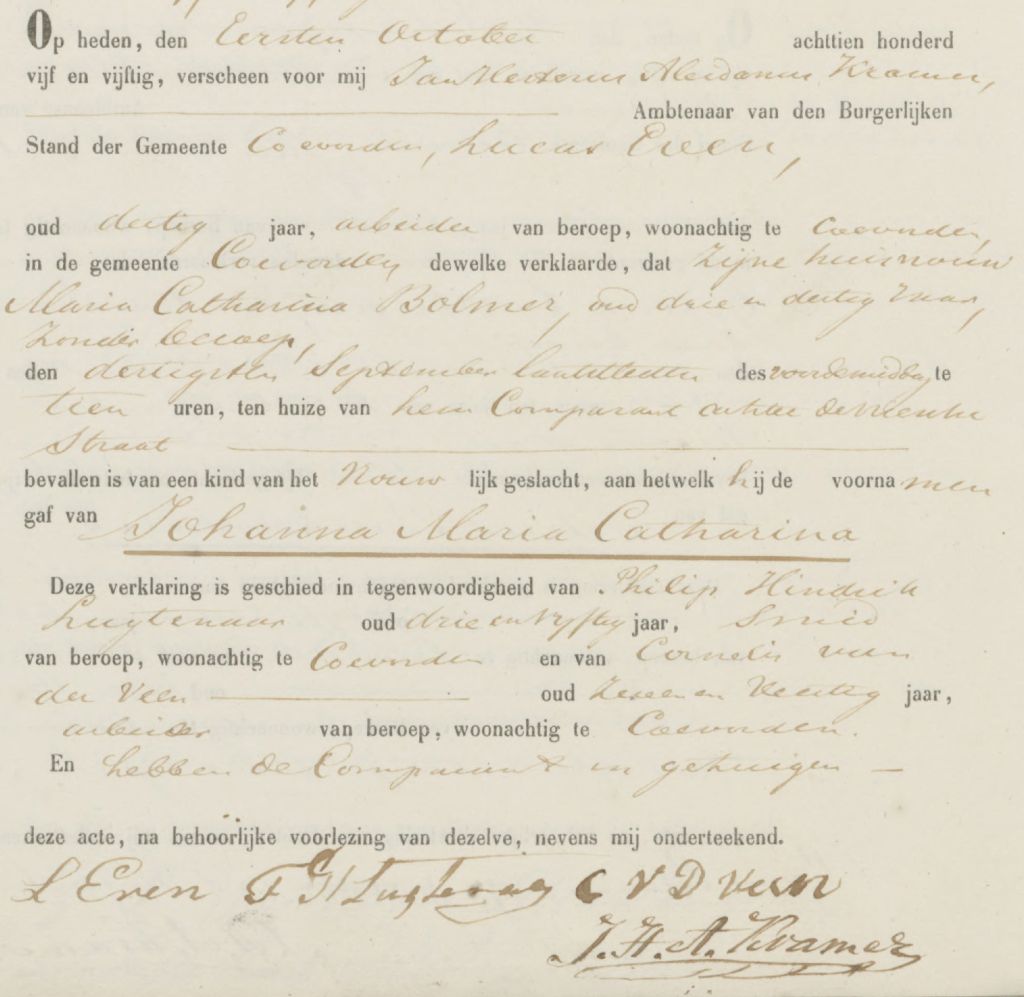 Op heden, den Eersten October achttien honderd
vijf en vijftig, verscheen voor mij Jan Alerdanus Kramer,
Ambtenaar van den Burgerlijken
Stand der Gemeente Coevorden, Lucas Even,
oud dertig jaar, arbeider van beroep, woonachtig te Coevorden,
in de gemeente Coevorden dewelke verklaarde, dat Zijne huisvrouw
Maria Catharina Bolmer, oud drie en dertig Jaar,
Zonder beroep,
den dertigsten September laatstleden des voordemiddags te
tien uren, ten huize van hem Comparant achter de Vriesche
Straat
bevallen is van een kind van het Vrouw lijk geslacht, aan hetwelk hij de voorna men
gaf van Johanna Maria Catharina
Deze verklaring is geschied in tegenwoordigheid van Philip Hindrik
Lugtenaar oud drie en vyftig jaar, Smid
van beroep, woonachtig te Coevorden en van Cornelis van
der Veen oud Zes en Veertig jaar,
arbeider van beroep, woonachtig te Coevorden.
En hebben de Comparant en getuigen
deze acte, na behoorlijke voorlezing van dezelve, nevens mij onderteekend.
L Even C V D Veen
J. H. A. Kramer